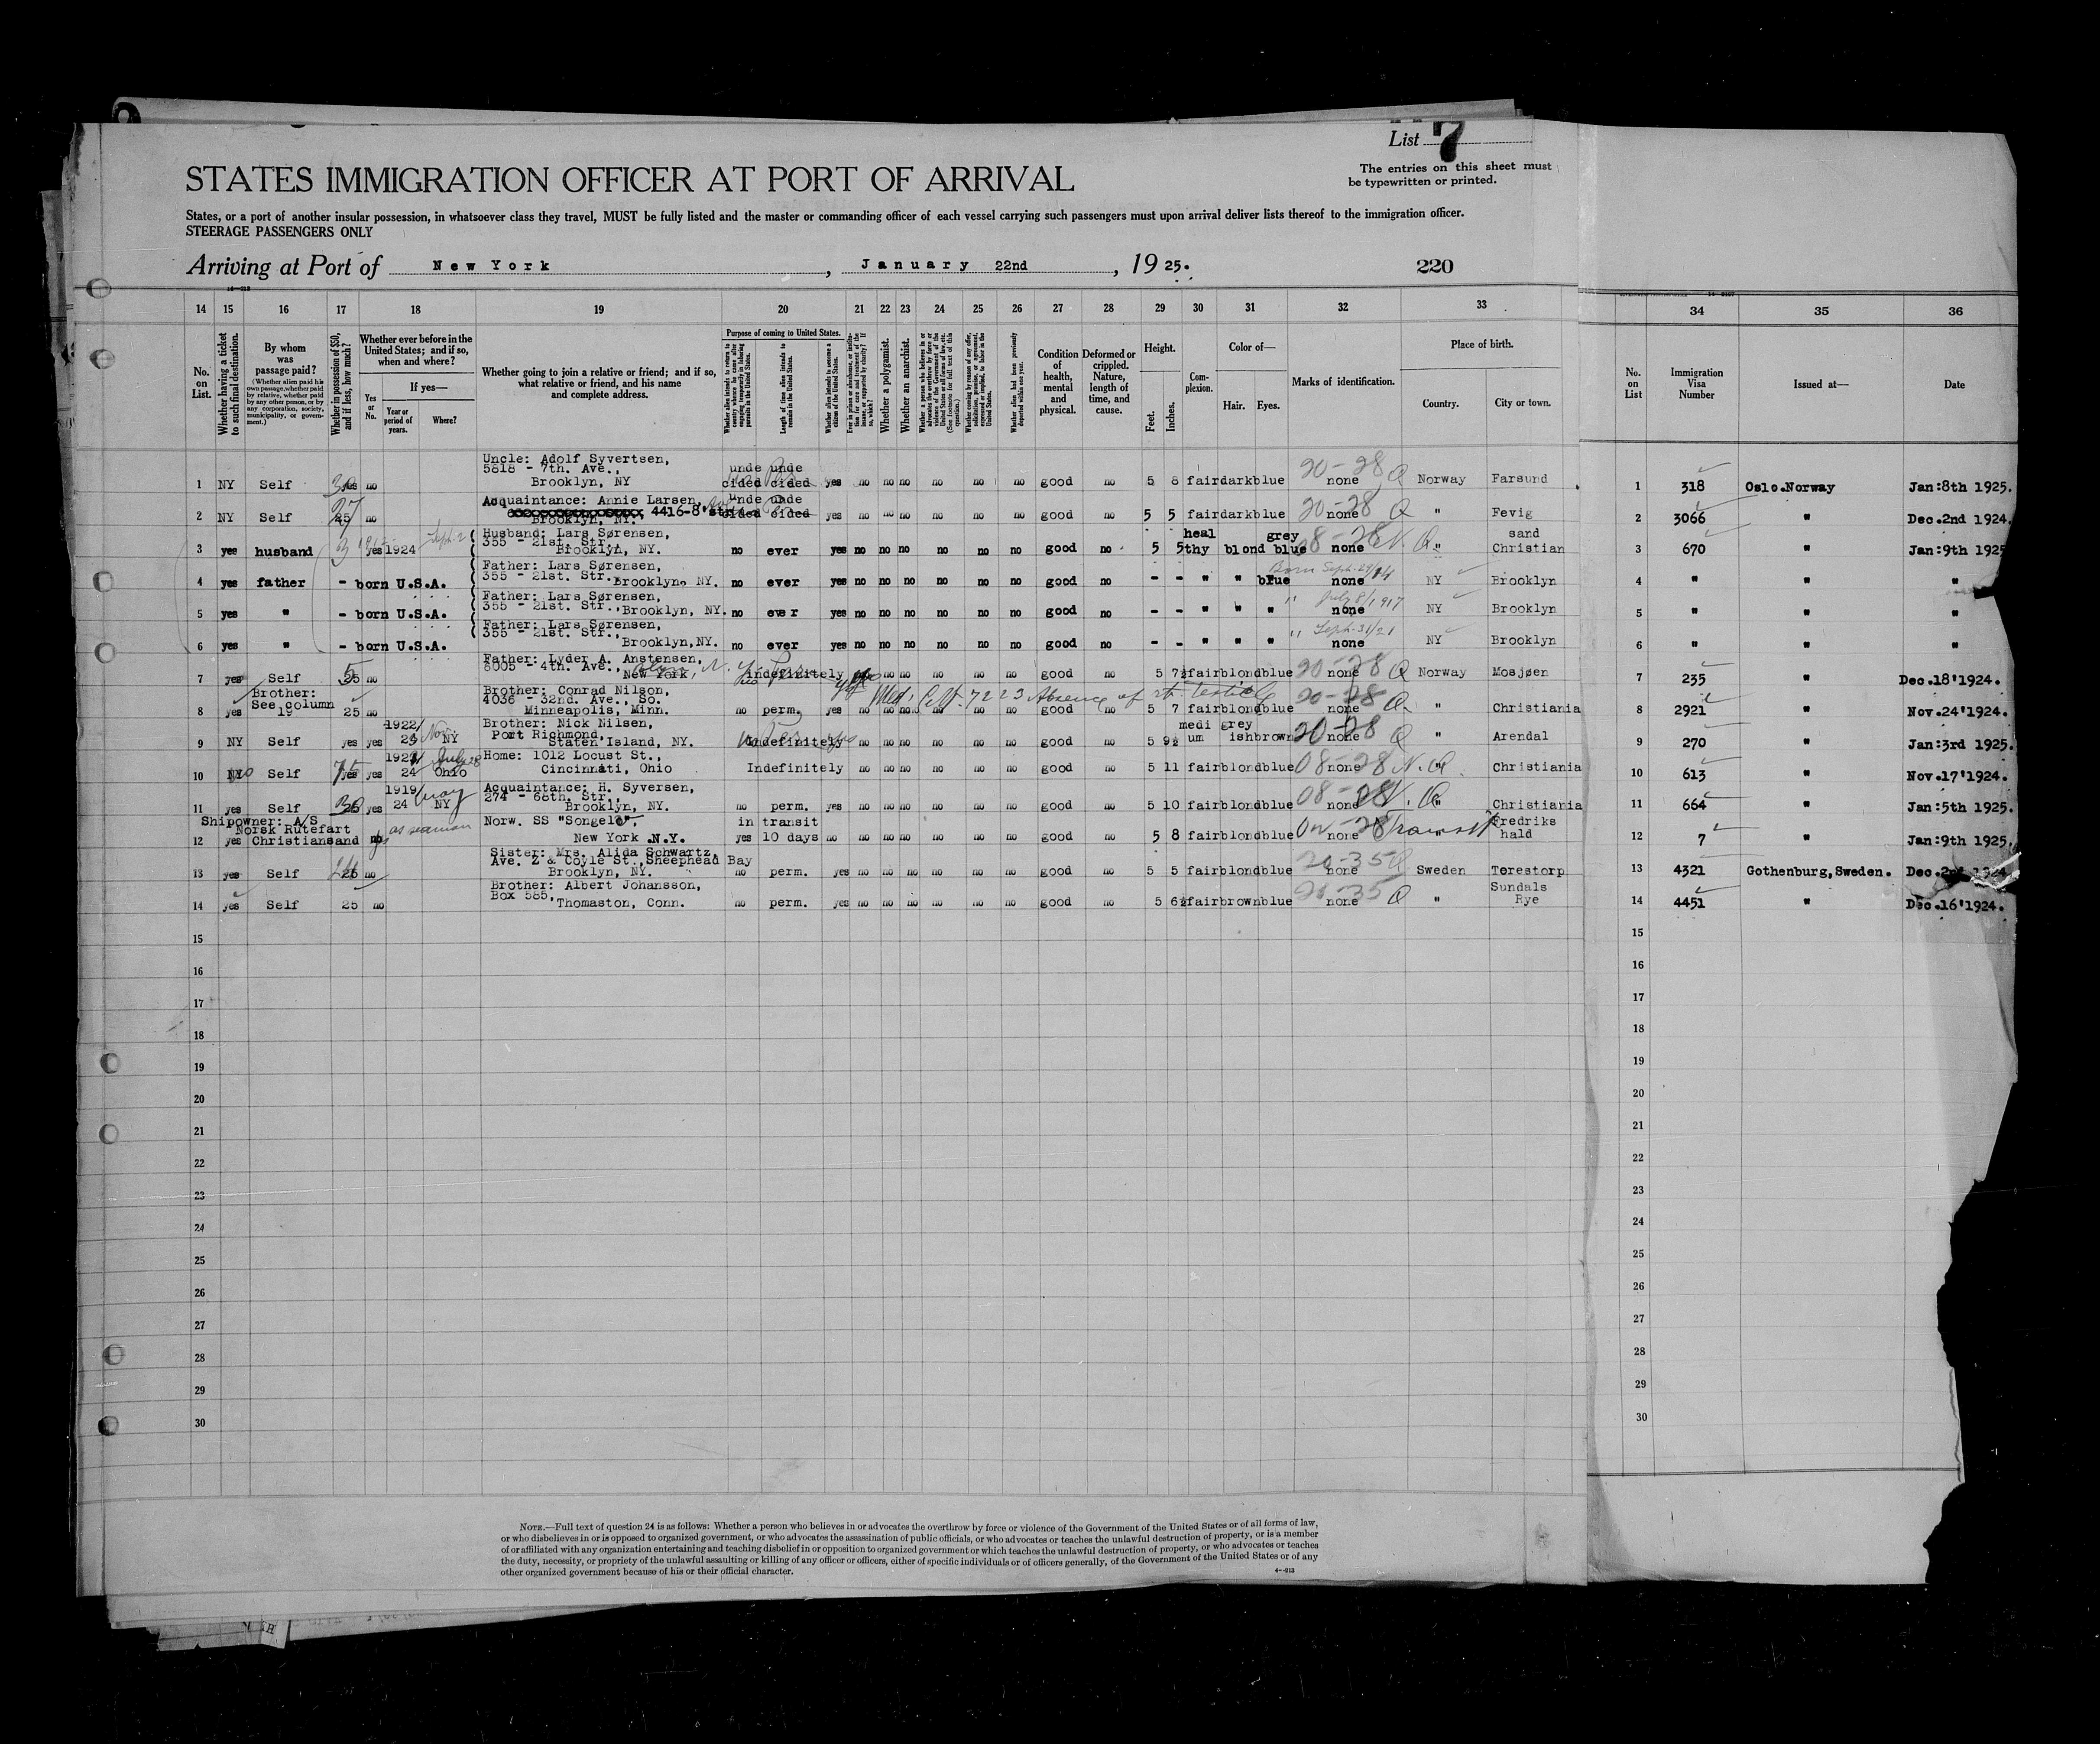 List 7
The entries on this sheet must
be typewritten or printed.
STATES IMMIGRATION OFFICER AT PORT OF ARRIVAL
States, or a port of another insular possession, in whatsoever class they travel, MUST be fully listed and the master or commanding officer of each vessel carrying such passengers must upon arrival deliver lists thereof to the immigration officer.
STEERAGE PASSENGERS ONLY
Arriving at Port of New York, January 22nd, 1925.
220
14 15 16 17 18 19 20 21 22 23 24 25 26 27 28 29 30 31 32 33 34 35 36
No. on List.
Whether having a ticket to such final destination.
By whom was passage paid?
(Whether alien paid his own passage, whether paid by relative, whether paid by any other person, or by any corporation, society, municipality, or government.)
Whether in possession of $50, and if less, how much?
Whether ever before in the United States; and if so, when and where?
Yes or No.
If yes—
Year or period of years.
Where?
Whether going to join a relative or friend; and if so, what relative or friend, and his name and complete address.
Purpose of coming to United States.
Length of time alien intends to remain in the United States.
Whether alien intends to become a citizen of the United States.
Whether a polygamist.
Whether an anarchist.
Whether alien had been previously deported within one year.
Condition of health, mental and physical.
Deformed or crippled. Nature, length of time, and cause.
Height.
Feet. Inches.
Complexion.
Color of—
Hair. Eyes.
Marks of identification.
Place of birth.
Country. City or town.
No. on List
Immigration Visa Number
Issued at—
Date
1 NY Self yes no Uncle: Adolf Syvertsen, 5818 - 7th. Ave., Brooklyn, NY undecided undecided yes no no no no no no good no 5 8 fair dark blue none 20-28 Q Norway Farsund 1 318 Oslo.Norway Jan:8th 1925.
2 NY Self 25 27 no Acquaintance: Annie Larsen, 4416-8' Brooklyn, NY. undecided undecided yes no no no no no no good no 5 5 fair dark blue none 20-28 Q " Fevig 2 3066 " Dec.2nd 1924.
3 yes husband yes 1924 Husband: Lars Sørensen, 355 - 21st. Str., Brooklyn, NY. no ever yes no no no no no no good no 5 5 healthy blond grey blue none 08-28 N.Q. " Christiansand 3 670 " Jan:9th 1925
4 yes father - born U.S.A. Father: Lars Sørensen, 355 - 21st. Str., Brooklyn, NY. no ever yes no no no no no no good no - - " " blue none Born Sept. 29/14 NY Brooklyn 4 " " "
5 yes " - born U.S.A. Father: Lars Sørensen, 355 - 21st. Str., Brooklyn, NY. no ever yes no no no no no no good no - - " " " none " July 8/1917 NY Brooklyn 5 " " "
6 yes " - born U.S.A. Father: Lars Sørensen, 355 - 21st. Str., Brooklyn, NY. no ever yes no no no no no no good no - - " " " none " Sept. 31/21 NY Brooklyn 6 " " "
7 yes Self no Father: Lyder A. Anstensen, 8005 - 4th. Ave., New York, Indefinitely no no no no no good no 5 7½ fair blond blue none 20-28 Q Norway Mosjøen 7 235 " Dec.18'1924.
8 yes Brother: See column 19 25 no Brother: Conrad Nilson, 4036 - 32nd. Ave., So. Minneapolis, Minn. no perm. yes no no no no no no good no 5 7 fair blond blue none 20-28 Q " Christiania 8 2921 " Nov.24'1924.
Med. Cert. 7223 Absence of rt. testicle
9 NY Self yes yes 1922/ Nov. NY Brother: Nick Nilsen, Port Richmond, Staten Island, NY. Indefinitely no no no no no no good no 5 9½ medium greyish brown none 20-28 Q " Arendal 9 270 " Jan:3rd 1925.
10 Self yes yes 24 July Ohio Home: 1012 Locust St., Cincinnati, Ohio Indefinitely no no no no no no good no 5 11 fair blond blue none 08-28 N.Q. " Christiania 10 613 " Nov.17'1924.
11 yes Self yes 1919/24 May NY Acquaintance: H. Syversen, 274 - 68th. Str., Brooklyn, NY. no perm. yes no no no no no no good no 5 10 fair blond blue none 08-28 N. Q " Christiania 11 664 " Jan:5th 1925.
12 yes Shipowner: A/S Norsk Rutefart Christiansand no as seaman Norw. SS "Songelv", New York N.Y. in transit yes 10 days no no no no no no no good no 5 8 fair blond blue none Transit " Fredrikshald 12 7 " Jan:9th 1925.
13 yes Self no Sister: Mrs. Alida Schwartz, Ave. Z & Coyle St., Sheephead Bay Brooklyn, NY. no perm. yes no no no no no no good no 5 5 fair blond blue none 20-35 Q Sweden Torestorp 13 4321 Gothenburg,Sweden. Dec.2nd 1924
14 yes Self 25 no Brother: Albert Johansson, Box 585, Thomaston, Conn. no perm. yes no no no no no no good no 5 6½ fair brown blue none 20-35 Q " Sundals Rye 14 4451 " Dec.16'1924.
15 15
16 16
17 17
18 18
19 19
20 20
21 21
22 22
23 23
24 24
25 25
26 26
27 27
28 28
29 29
30 30
NOTE.—Full text of question 24 is as follows: Whether a person who believes in or advocates the overthrow by force or violence of the Government of the United States or of all forms of law,
or who disbelieves in or is opposed to organized government, or who advocates the assassination of public officials, or who advocates or teaches the unlawful destruction of property, or is a member
of or affiliated with any organization entertaining and teaching disbelief in or opposition to organized government or which teaches the unlawful destruction of property, or who advocates or teaches
the duty, necessity, or propriety of the unlawful assaulting or killing of any officer or officers, either of specific individuals or of officers generally, of the Government of the United States or of any
other organized government because of his or their official character.